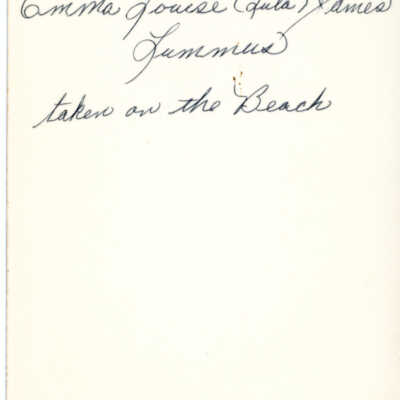 Emma Louise (Lula) James
Lummus
taken on the Beach